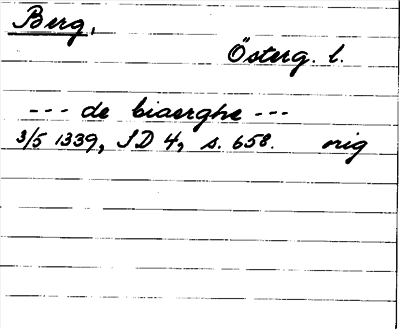 Berg,
Österg. l.
--- de biaerghe ---
3/5 1339, SD 4, s. 658. orig